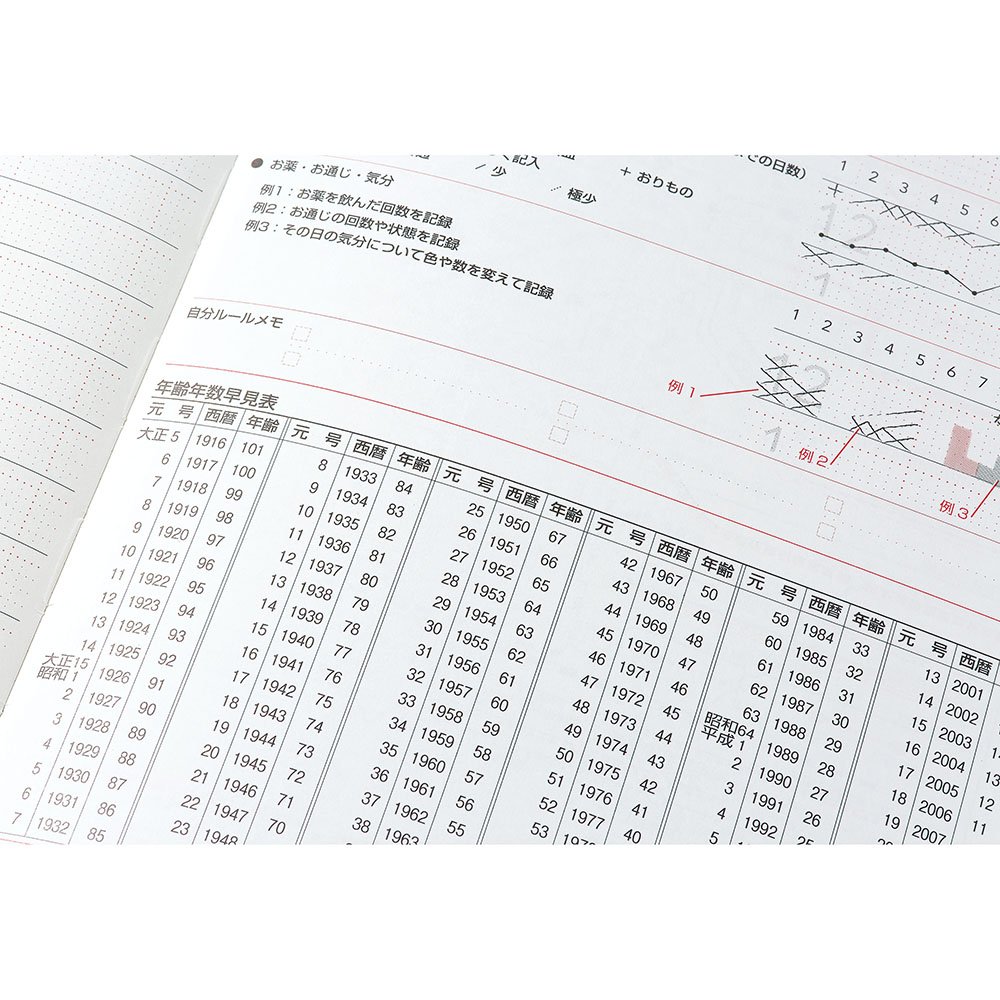 ● お薬・お通じ・気分
例1：お薬を飲んだ回数を記録
例2：お通じの回数や状態を記録
例3：その日の気分について色や数を変えて記録
記入
／少
極少
＋ おりもの
での日数）
1 2 3 4 5 6
＋
12
1
1 2 3 4 5 6 7
12
1
例1
例2
例3
自分ルールメモ
年齢年数早見表
元 号 西暦 年齢
大正5 1916 101
6 1917 100
7 1918 99
8 1919 98
9 1920 97
10 1921 96
11 1922 95
12 1923 94
13 1924 93
14 1925 92
大正15
昭和1 1926 91
2 1927 90
3 1928 89
4 1929 88
5 1930 87
6 1931 86
7 1932 85
元 号 西暦 年齢
8 1933 84
9 1934 83
10 1935 82
11 1936 81
12 1937 80
13 1938 79
14 1939 78
15 1940 77
16 1941 76
17 1942 75
18 1943 74
19 1944 73
20 1945 72
21 1946 71
22 1947 70
23 1948
元 号 西暦 年齢
25 1950 67
26 1951 66
27 1952 65
28 1953 64
29 1954 63
30 1955 62
31 1956 61
32 1957 60
33 1958 59
34 1959 58
35 1960 57
36 1961 56
37 1962 55
38 1963
元 号 西暦 年齢
42 1967 50
43 1968 49
44 1969 48
45 1970 47
46 1971 46
47 1972 45
48 1973 44
49 1974 43
50 1975 42
51 1976 41
52 1977 40
53 1978
元 号 西暦 年齢
59 1984 33
60 1985 32
61 1986 31
62 1987 30
63 1988 29
昭和64
平成1 1989 28
2 1990 27
3 1991 26
4 1992 25
5
元 号 西暦
13 2001
14 2002
15 2003
16 2004 13
17 2005 12
18 2006 11
19 2007